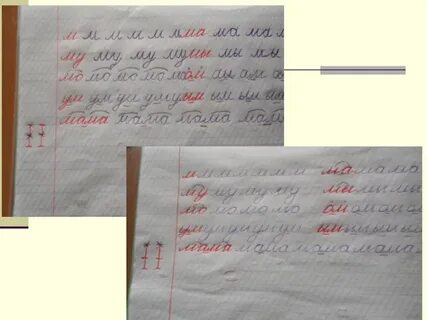 м м м м м м ма ма ма м
му му му му мы мы мы
мо мо мо мо мо ом ам ам
ум ум ум ум ум ым ым ым
мама мама мама мама
м м м м м м ма ма ма
му му му му мы мы мы
мо мо мо мо мо ом ом ом
ум ум ум ум ум ым ым ым ым
мама мама мама мама